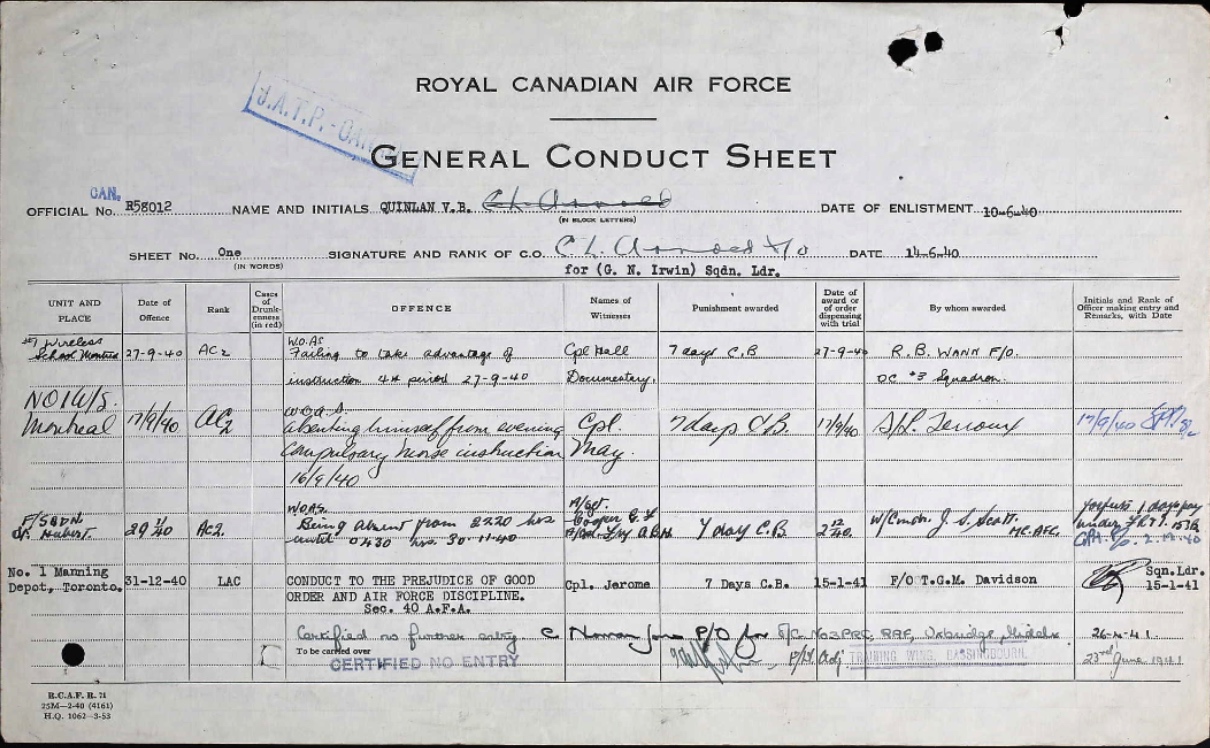 ROYAL CANADIAN AIR FORCE
J.A.T.P.-CAN
GENERAL CONDUCT SHEET
CAN.
OFFICIAL No. R58012 NAME AND INITIALS QUINLAN V.B. C.L. Arnoed
(IN BLOCK LETTERS)
DATE OF ENLISTMENT 10-6-40
SHEET No. One SIGNATURE AND RANK OF C.O. C.L. Arnoed F/O DATE 14-6-40
(IN WORDS) for (G. N. Irwin) Sqdn. Ldr.
UNIT AND PLACE
Date of Offence
Rank
Cases of Drunk-enness (in red)
OFFENCE
Names of Witnesses
Punishment awarded
Date of award or of order dispensing with trial
By whom awarded
Initials and Rank of Officer making entry and Remarks, with Date
#1 Wireless W.O.AS
School Montreal 27-9-40 AC2 Failing to take advantage of Cpl Hall 7 days C.B 27-9-40 R.B. WANN F/O.
instruction 4th period 27-9-40 Documentary. OC #3 Squadron.
NO 1 W/S. W.O.A.S.
Montreal 17/9/40 AC2 absenting himself from evening Cpl. 7 days C.B. 17/9/40 S/L. 17/9/40
Compulsary morse instruction May.
16/9/40
W.O.AS. A/Sgt.
F/SQDN 29 11/40 AC2. Being absent from 2220 hrs Cooper 7 day C.B. 2 12/40. W/Cmdr. J. S. Scott. forfeits 1 days pay
St. Hubert. until 0430 hrs. 30-11-40 MC. AFC. under
2.12.40
No. 1 Manning 31-12-40 LAC CONDUCT TO THE PREJUDICE OF GOOD Cpl. Jerome 7 Days C.B. 15-1-41 F/O T.G.M. Davidson Sqn.Ldr.
Depot, Toronto. ORDER AND AIR FORCE DISCIPLINE. 15-1-41
Sec. 40 A.F.A.
Certified no further entry. C Norman Jones P/O for O/C. No3 PRC, RAF, Uxbridge, Middlx 26-4-41.
To be carried over
CERTIFIED NO ENTRY F/Lt Adj TRAINING WING, BASSINGBOURN. 23rd June 1941
R.C.A.F. R. 71
25M-2-40 (4161)
H.Q. 1062-3-53